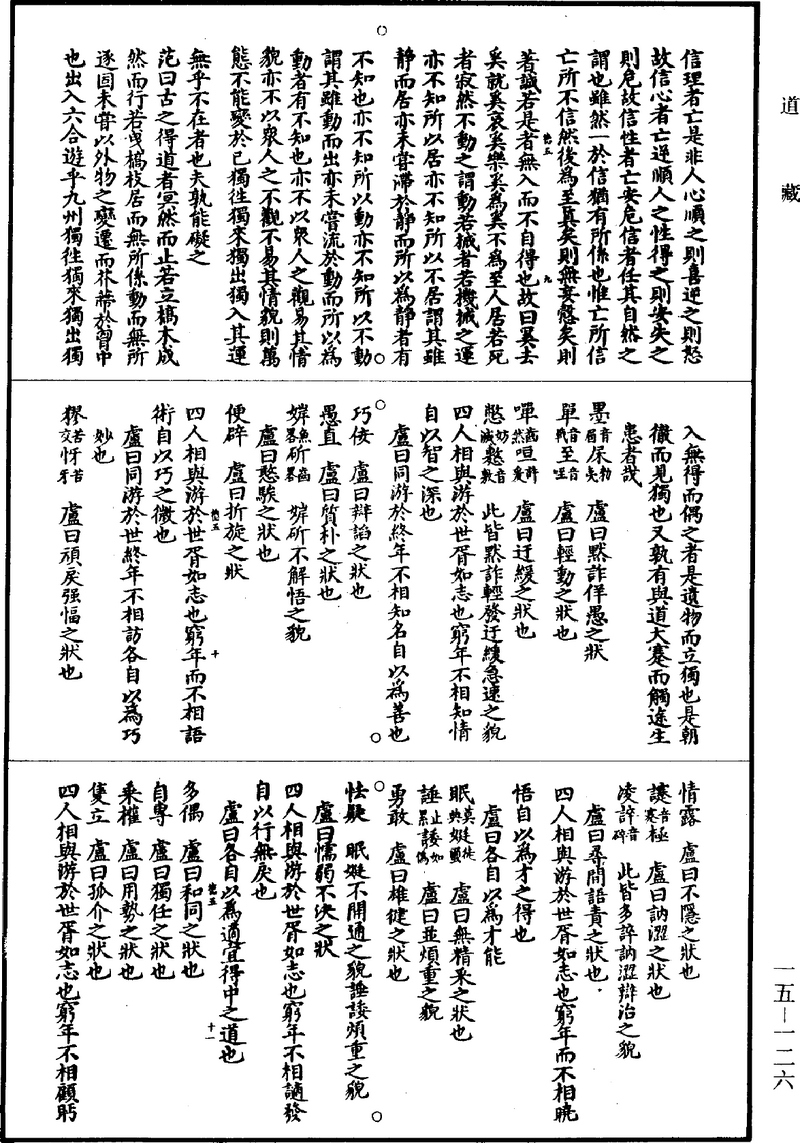 道藏
信理者亡是非人心順之則喜逆之則怒
故信心者亡逆順人之性得之則安失之
則危故信性者亡安危信者任其自然之
謂也雖然一於信猶有所係也惟亡所信
亡所不信然後為至真矣則無妄愨矣則
著誠若是者無入而不自得也故曰奚去
奚就奚哀奚樂奚為奚不為至人居若死
者寂然不動之謂動若械者若機械之運
亦不知所以居亦不知所以不居謂其雖
靜而居亦未嘗滯於靜而所以為靜者有
不知也亦不知所以動亦不知所以不動
謂其雖動而出亦未嘗流於動而所以為
動者有不知也亦不以衆人之觀易其情
貌亦不以衆人之不觀不易其情貌則萬
態不能變於已獨往獨來獨出獨入其運
無乎不在者也夫孰能礙之
范曰古之得道者冥然而止若立槁木成
然而行若曳槁枝居而無所係動而無所
逐固未嘗以外物之變遷而芥蔕於胷中
也出入六合遊乎九州獨往獨來獨出獨
入無得而偶之者是遺物而立獨也是朝
徹而見獨也又孰有與道大蹇而觸途生
患者哉
墨音眉㞘勑夷 盧曰默詐佯愚之狀
單音戰至音咥 盧曰輕動之狀也
嘽齒然咺許爰 盧曰迂緩之狀也
憋妨滅憋音敷 此皆默詐輕發迂緩急速之貌
四人相與游於世胥如志也窮年不相知情
自以智之深也
盧曰同游於終年不相知名自以為善也
巧佞 盧曰辯謟之狀也
愚直 盧曰質朴之狀也
婩魚器斫齒器 婩斫不解悟之貌
盧曰憨騃之狀也
便辟 盧曰折旋之狀
四人相與游於世胥如志也窮年而不相語
術自以巧之微也
盧曰同游於世終年不相訪各自以為巧
妙也
㺒苦交㤉苦牙 盧曰頑戾强愊之狀也
情露 盧曰不隱之狀也
𧬘音蹇極 盧曰訥澀之狀也
凌誶音碎 此皆多誶訥澀辯治之貌
盧曰尋問語責之狀也
四人相與游於世胥如志也窮年而不相曉
悟自以為才之得也
盧曰各自以為才能
眠莫典娗徒顯 盧曰無精采之狀也
諈止累諉如偽 盧曰並煩重之貌
勇敢 盧曰雄健之狀也
怯疑 眠娗不開通之貌諈諉煩重之貌
盧曰懦弱不决之狀
四人相與游於世胥如志也窮年不相讁發
自以行無戾也
盧曰各自以為適宜得中之道也
多偶 盧曰和同之狀也
自專 盧曰獨任之狀也
乘權 盧曰用勢之狀也
隻立 盧曰孤介之狀也
四人相與游於世胥如志也窮年不相顧眄
一五—一二六